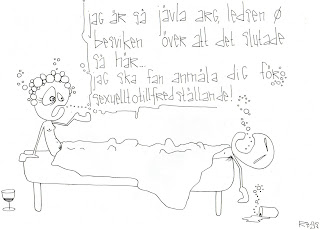 jag är så jävla arg, ledsen &
besviken över att det slutade
så här...
jag ska fan anmäla dig för
sexuelltotillfredställande!